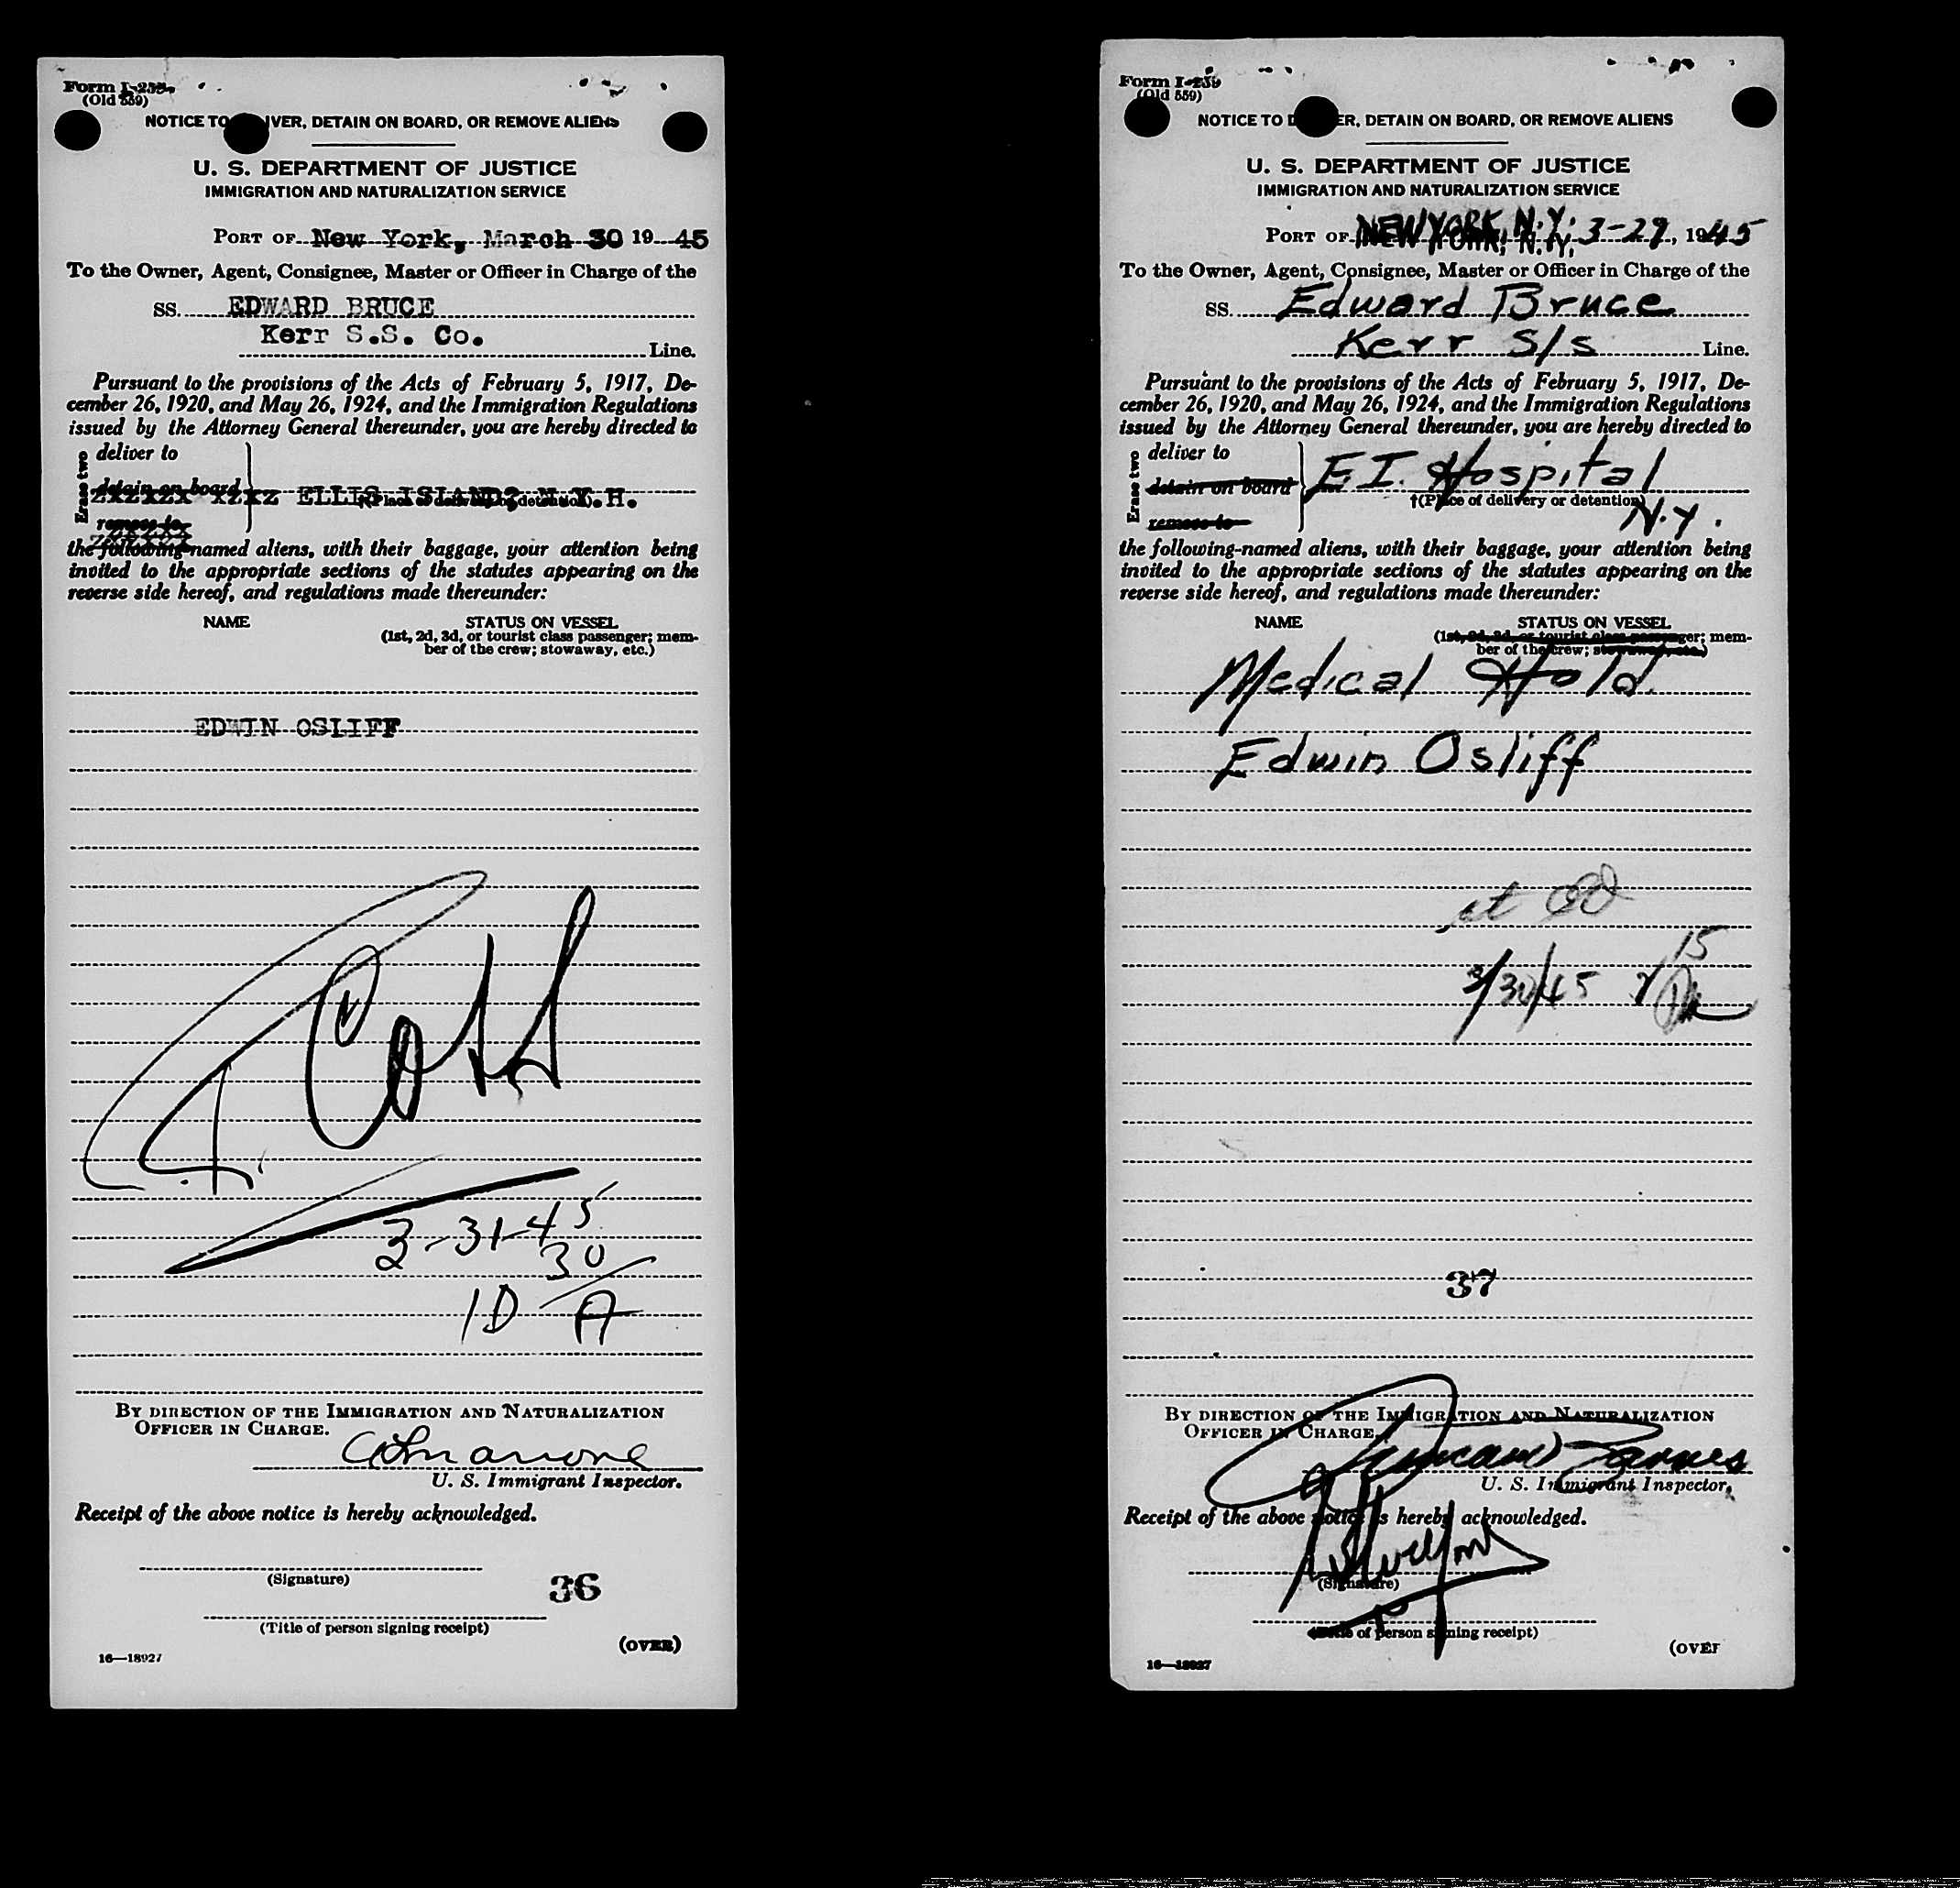 Form I-259
(Old 559)
NOTICE TO IVER, DETAIN ON BOARD, OR REMOVE ALIENS
U. S. DEPARTMENT OF JUSTICE
IMMIGRATION AND NATURALIZATION SERVICE
PORT OF New York, March 30 19 45
To the Owner, Agent, Consignee, Master or Officer in Charge of the
SS. EDWARD BRUCE
Kerr S.S. Co.
Line.
Pursuant to the provisions of the Acts of February 5, 1917, De-
cember 26, 1920, and May 26, 1924, and the Immigration Regulations
issued by the Attorney General thereunder, you are hereby directed to
Erase two
deliver to
detain on board
ELLIS ISLAND, N.Y.H.
†(Place of delivery or detention)
remove to
the following-named aliens, with their baggage, your attention being
invited to the appropriate sections of the statutes appearing on the
reverse side hereof, and regulations made thereunder:
NAME STATUS ON VESSEL
(1st, 2d, 3d, or tourist class passenger; mem-
ber of the crew; stowaway, etc.)
EDWIN OSLIFF
3-31-45
30
10 A
BY DIRECTION OF THE IMMIGRATION AND NATURALIZATION
OFFICER IN CHARGE.
U. S. Immigrant Inspector.
Receipt of the above notice is hereby acknowledged.
(Signature)
36
(Title of person signing receipt)
(OVER)
16—18927
Form I-259
(Old 559)
NOTICE TO D ER, DETAIN ON BOARD, OR REMOVE ALIENS
U. S. DEPARTMENT OF JUSTICE
IMMIGRATION AND NATURALIZATION SERVICE
PORT OF NEW YORK, N.Y. 3-29, 1945
To the Owner, Agent, Consignee, Master or Officer in Charge of the
SS. Edward Bruce
Kerr S/s Line.
Pursuant to the provisions of the Acts of February 5, 1917, De-
cember 26, 1920, and May 26, 1924, and the Immigration Regulations
issued by the Attorney General thereunder, you are hereby directed to
Erase two
deliver to
detain on board
E.I. Hospital
†(Place of delivery or detention)
N.Y.
remove to
the following-named aliens, with their baggage, your attention being
invited to the appropriate sections of the statutes appearing on the
reverse side hereof, and regulations made thereunder:
NAME STATUS ON VESSEL
(1st, 2d, 3d, or tourist class passenger; mem-
ber of the crew; stowaway, etc.)
Medical Hold
Edwin Osliff
at
15
3/30/45
37
BY DIRECTION OF THE IMMIGRATION AND NATURALIZATION
OFFICER IN CHARGE.
Barnes
U. S. Immigrant Inspector.
Receipt of the above notice is hereby acknowledged.
(Signature)
(Title of person signing receipt)
(OVER
16—18927